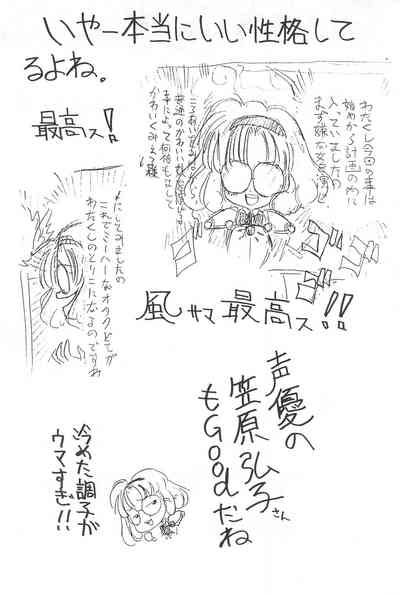 いやー本当にいい性格して
るよね。
最高ス!
わたくし今回の事は
始めから計画の内に
入ってましたの
まず嫌な女を演じ
普通のかわいい女の子に
事によって何倍も
かわいくみえる様
にしてみましたの
これでミーハーなオタクどもが
わたくしのとりこになるのですわ
風サマ最高ス!!
声優の
笠原弘子さん
もGoodだね
冷めた調子が
ウマすぎ!!